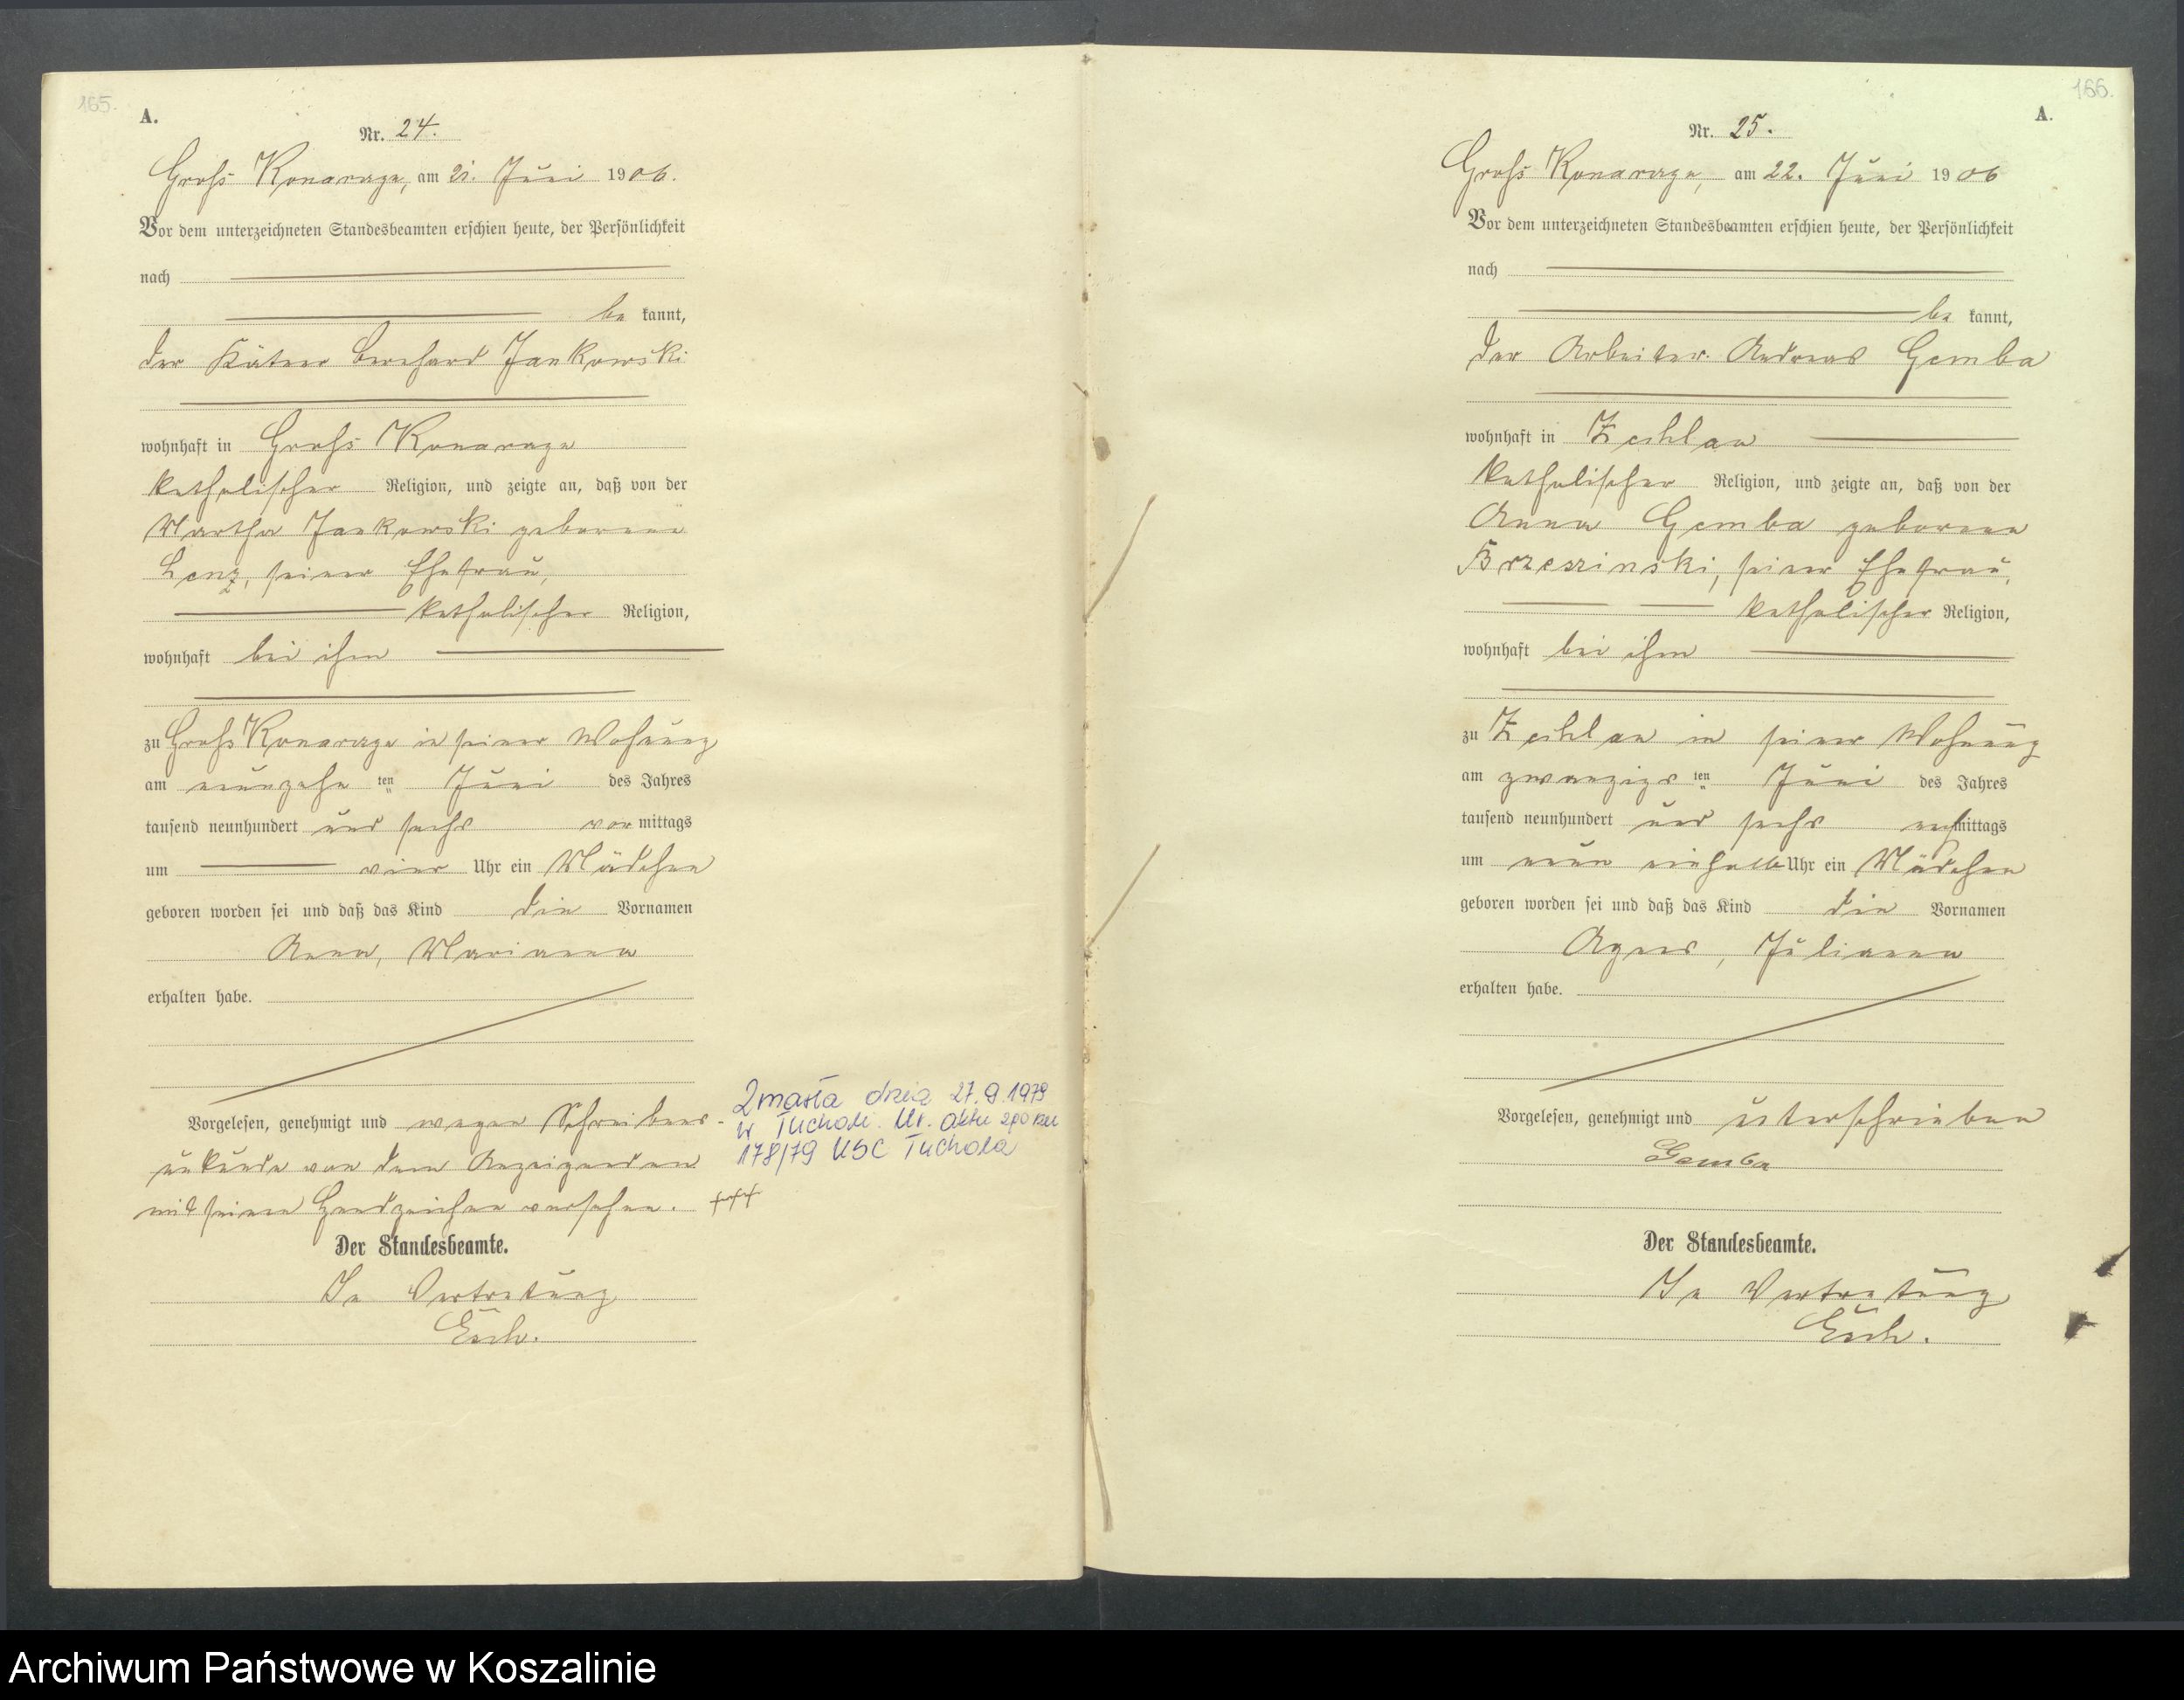 165.
A.
Nr. 24.
Groß Konarczyn, am 21. Juni 1906.
Vor dem unterzeichneten Standesbeamten erschien heute, der Persönlichkeit
nach
be kannt,
der Kätner Bernhard Jankowski
wohnhaft in Groß Konarczyn
katholischer Religion, und zeigte an, daß von der
Martha Jankowski geborene
Lenz, seiner Ehefrau,
katholischer Religion,
wohnhaft bei ihm
zu Groß Konarczyn in seiner Wohnung
am neunzehn ten Juni des Jahres
tausend neunhundert und sechs vor mittags
um vier Uhr ein Mädchen
geboren worden sei und daß das Kind die Vornamen
Anna, Marianna
erhalten habe.
Vorgelesen, genehmigt und wegen Schreibens-
unkunde von dem Anzeigenden
mit seinem Handzeichen versehen. +++
Der Standesbeamte.
In Vertretung
Esch.
Zmarła dnia 27.9.1979
w Tucholi. Nr. aktu zgonu
178/79 USC Tuchola
166.
A.
Nr. 25.
Groß Konarczyn, am 22. Juni 1906
Vor dem unterzeichneten Standesbeamten erschien heute, der Persönlichkeit
nach
be kannt,
der Arbeiter Andreas Gemba
wohnhaft in Zechlau
katholischer Religion, und zeigte an, daß von der
Anna Gemba geborene
Brzeszinski, seiner Ehefrau,
katholischer Religion,
wohnhaft bei ihm
zu Zechlau in seiner Wohnung
am zwanzigs ten Juni des Jahres
tausend neunhundert und sechs nachmittags
um neun einhalb Uhr ein Mädchen
geboren worden sei und daß das Kind die Vornamen
Agnes, Julianna
erhalten habe.
Vorgelesen, genehmigt und unterschrieben
Gemba
Der Standesbeamte.
In Vertretung
Esch.
Archiwum Państwowe w Koszalinie